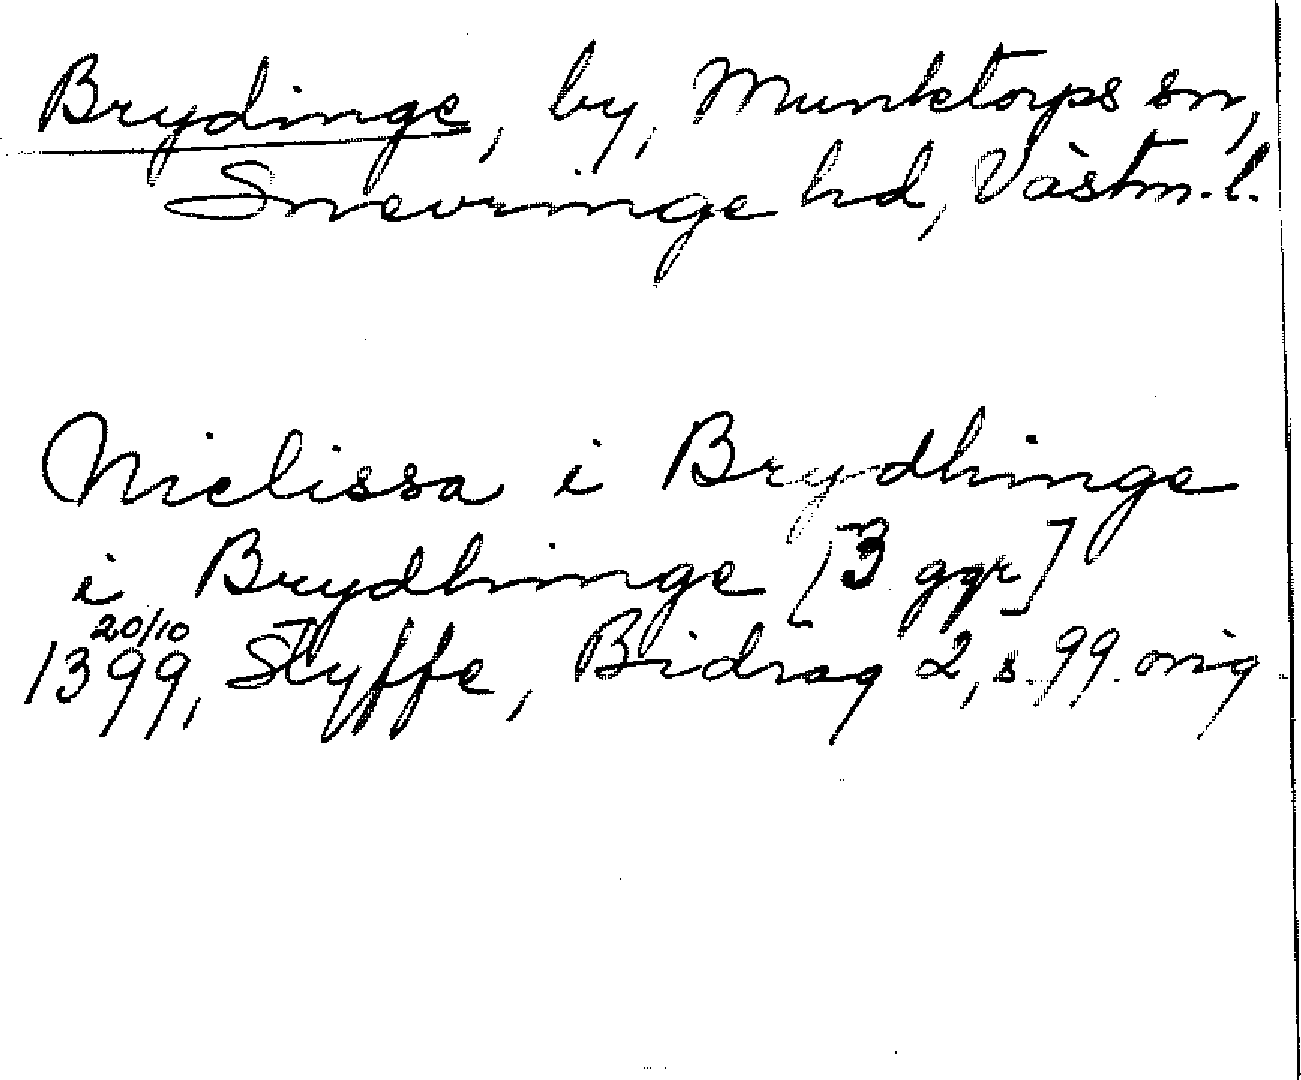 Brydinge, by, Munktorps sn,
Snevringe hd, Västm. l.
Nielissa i Brydhinge
i Brydhinge [3 ggr]
20/10
1399, Styffe, Bidrag 2, s. 99. orig